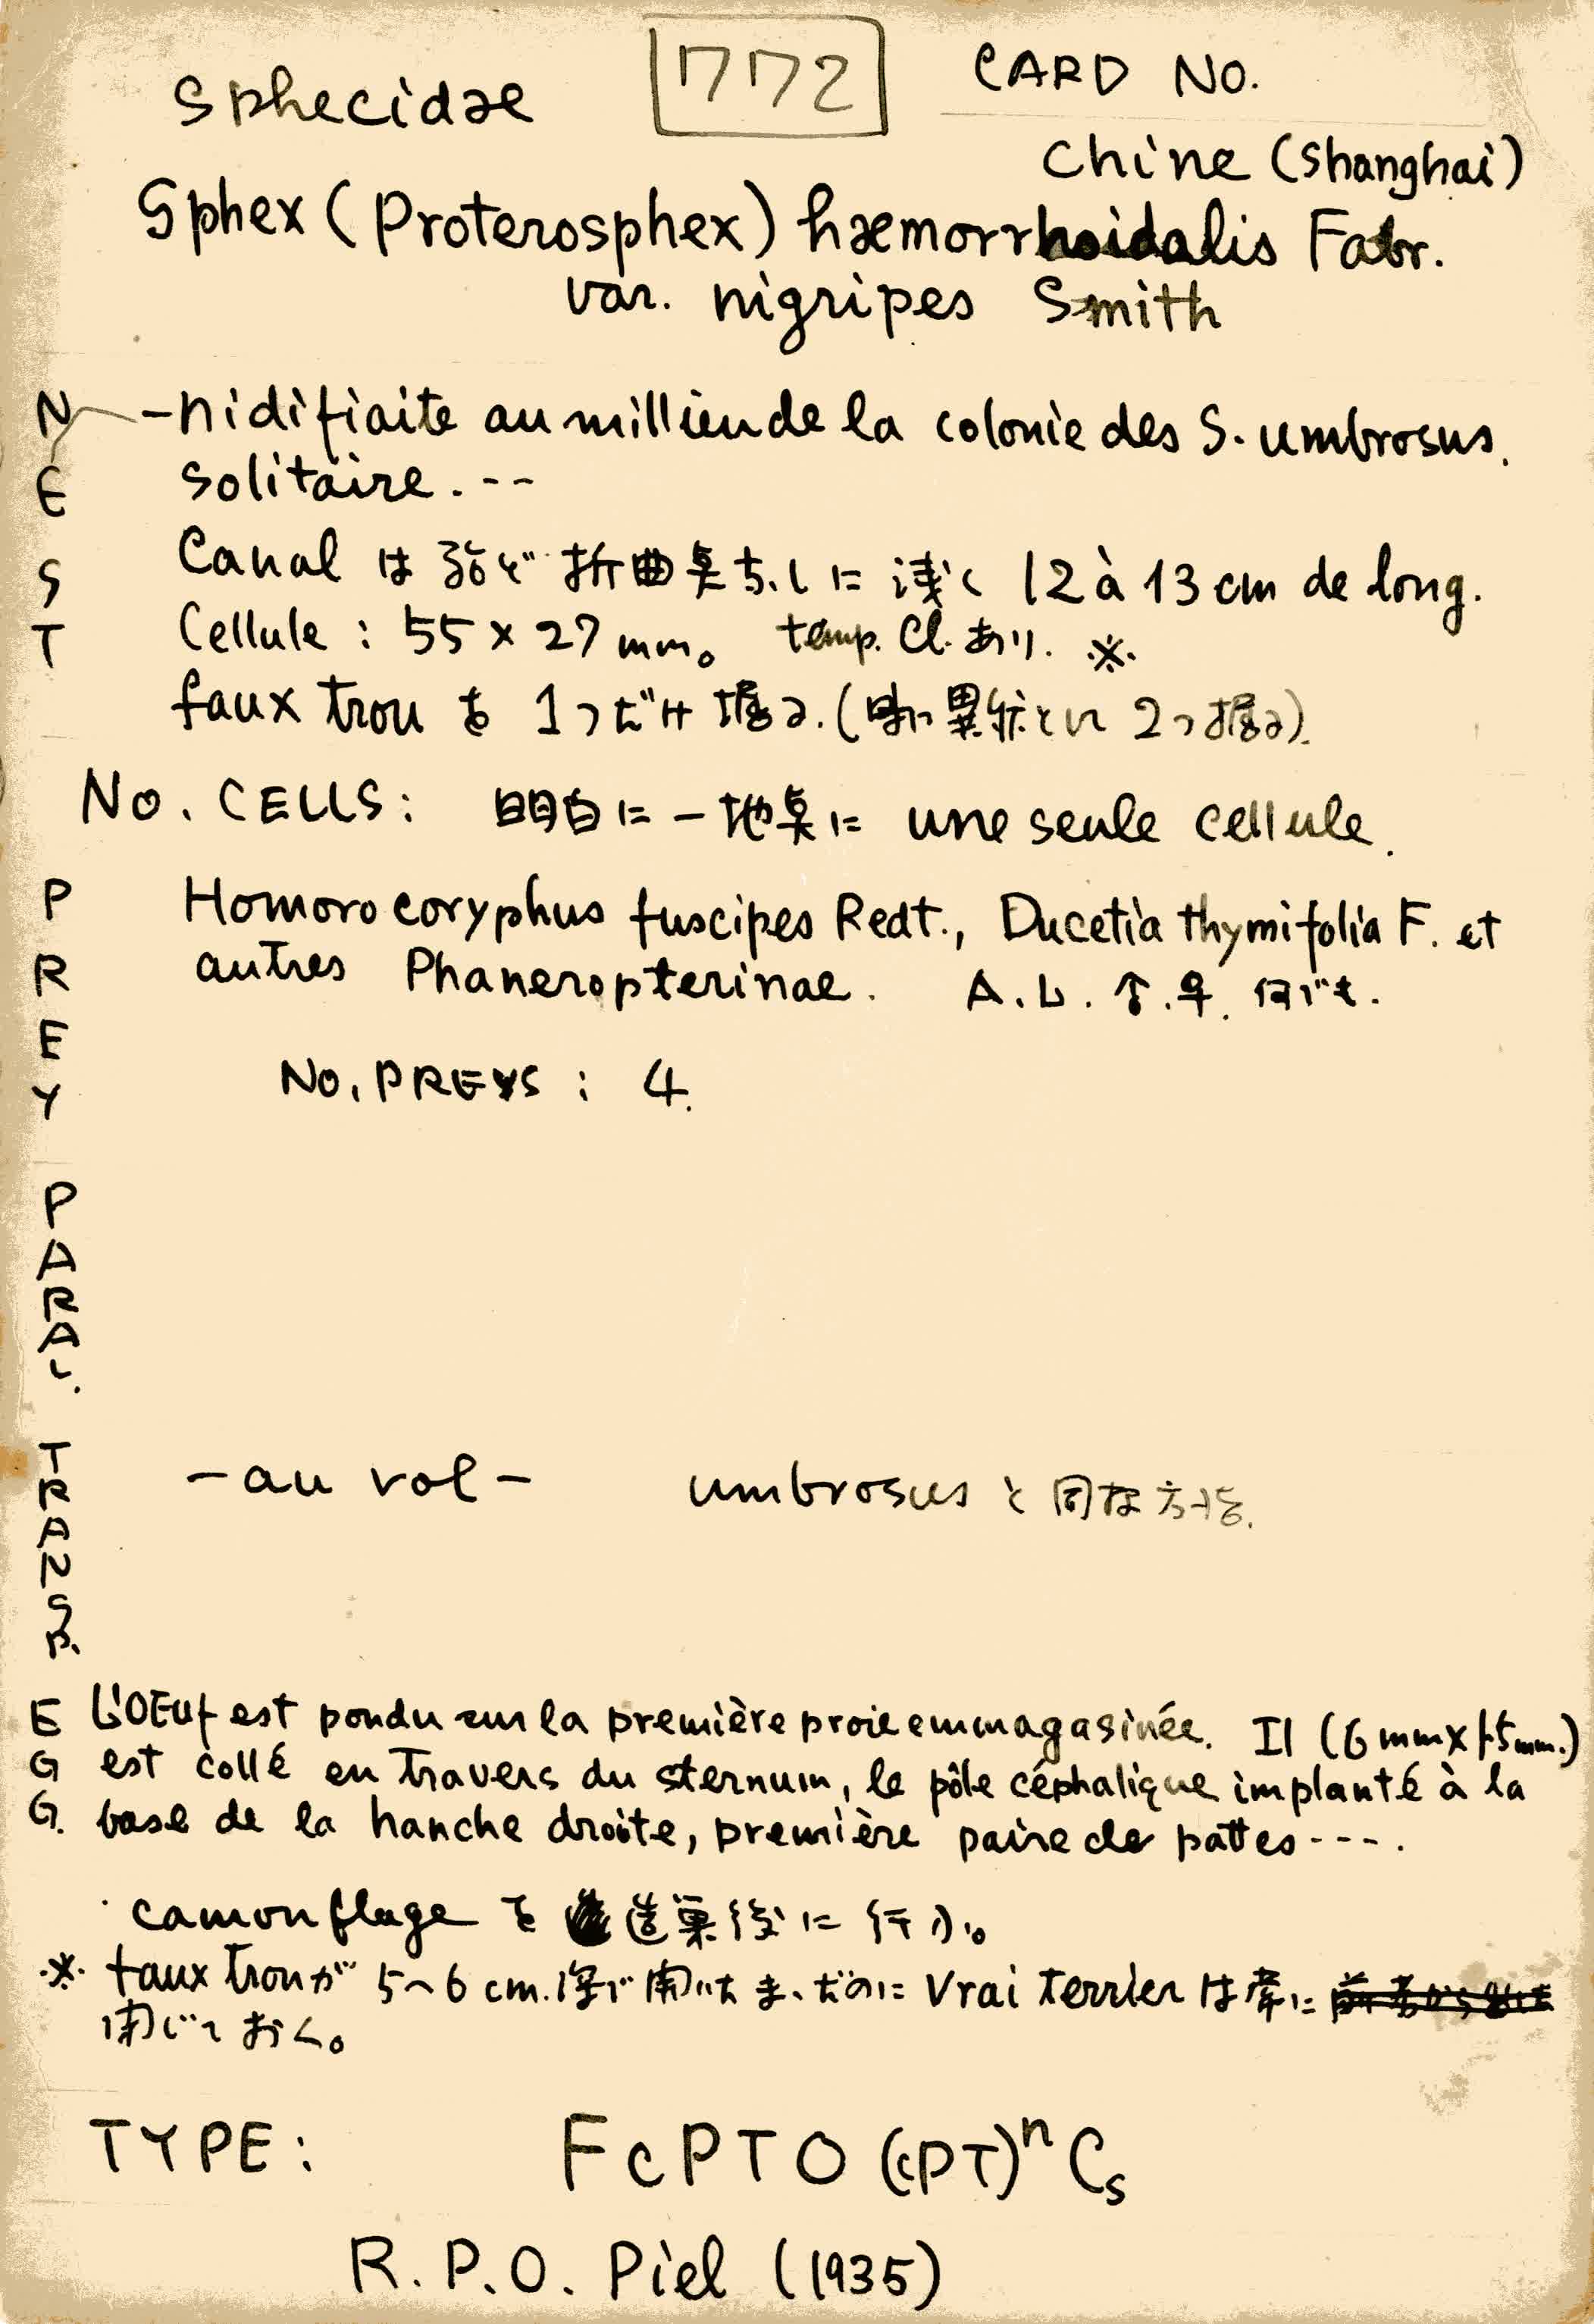 Sphecidae
772
CARD NO.
Chine (Shanghai)
Sphex (Proterosphex) hæmorrhoidalis Fabr.
var. nigripes Smith
NEST
-nidifiaite au millieu de la colonie des S. umbrosus.
solitaire. --
Canal は 12 à 13 cm de long.
Cellule : 55 × 27 mm。 temp. Cl. あり. ※
faux trou を 1つだけ掘る. ( 2つ掘る).
No. CELLS: 明白に一地巣に une seule cellule.
PREY
Homorocoryphus fuscipes Redt., Ducetia thymifolia F. et
autres Phaneropterinae. A.L. ♂.♀. 何でも.
No. PREYS : 4.
PARA.
TRANSP.
-au vol- umbrosus と同な方法.
EGG.
L'OEuf est pondu sur la première proie emmagasinée. Il (6 mm x 1.5 mm.)
est collé en travers du sternum, le pôle céphalique implanté à la
base de la hanche droite, première paire de pattes ---.
camouflage を 造巣後に行う。
※ faux trou が 5~6 cm. 深で開いたまゝだのに Vrai terrier は常に
閉じておく。
TYPE: FcPTO (cPT)ⁿ Cs
R. P. O. Piel (1935)